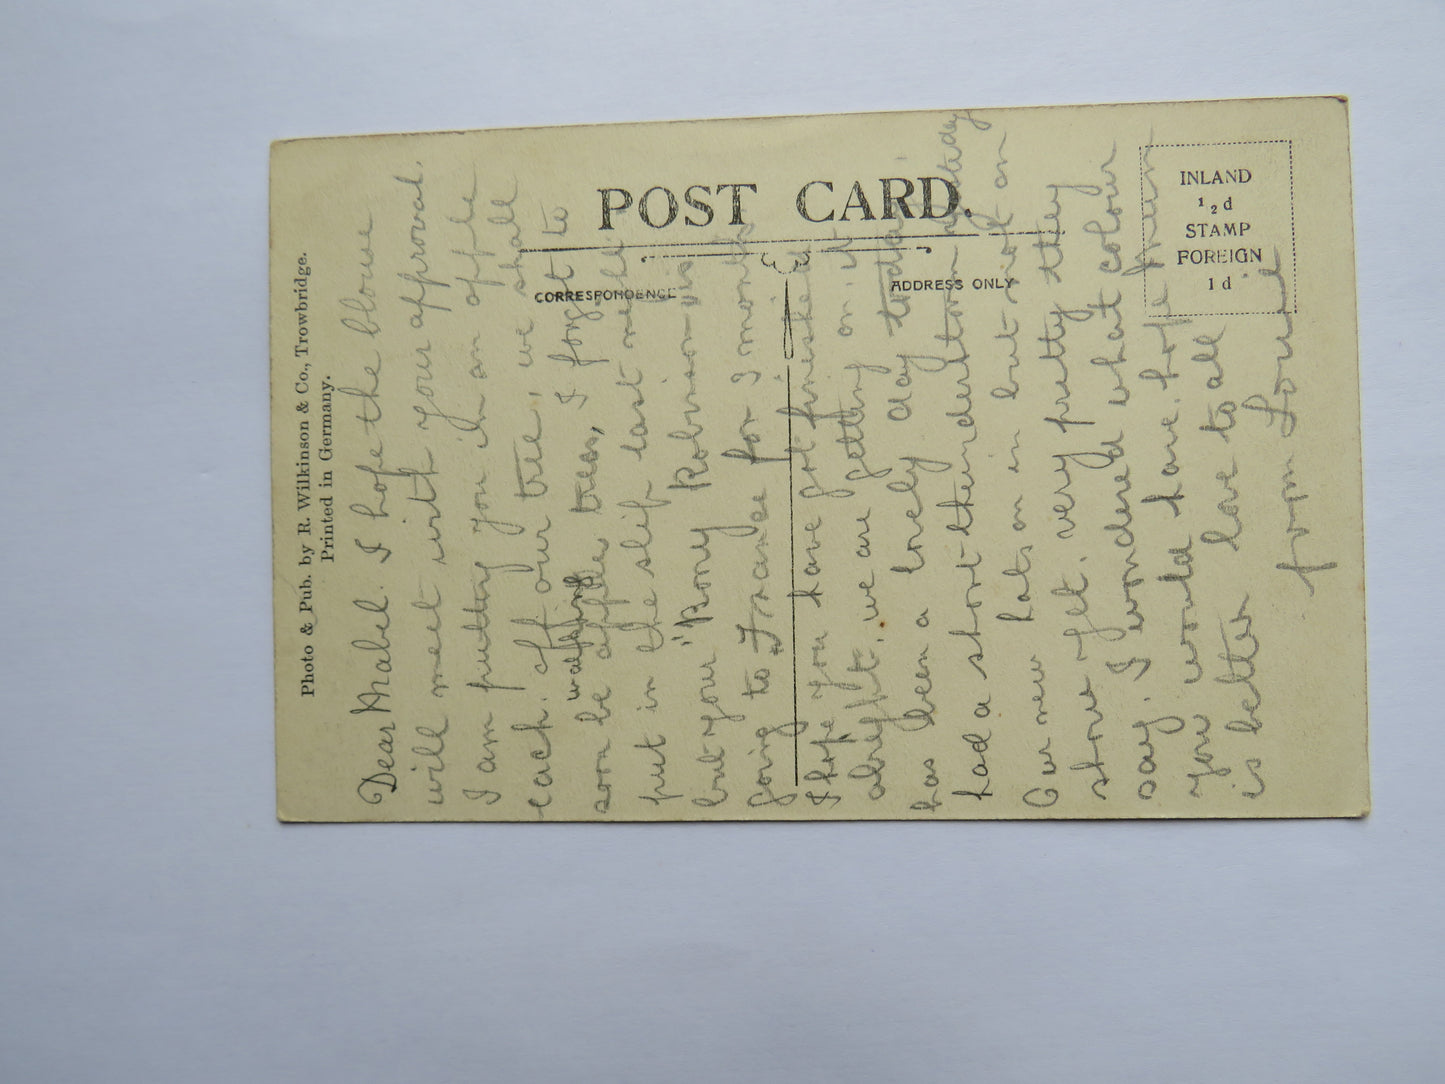 POST CARD.
CORRESPONDENCE
ADDRESS ONLY
INLAND
½d
STAMP
FOREIGN
1d
Photo & Pub. by R. Wilkinson & Co., Trowbridge.
Printed in Germany.
Dear Mabel. I hope the blouse
will meet with your approval.
I am putting you in an apple
each. off our tree, we shall
soon be apples trees, I forgot to
put in the slip last
but your "Rony Robinson is
going to France for 3 months
I hope you have got finished
alright. we are getting on. it
has been a lovely day today.
had a short thunderstorm yesterday
Our new hats on in but not on
show yet. very pretty they
say. I wondered what colour
you would have. hope
is better love to all
from Louie